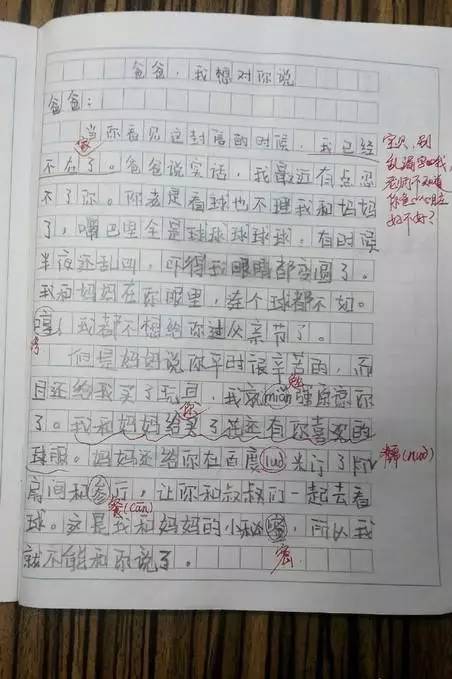 爸爸,我想对你说
爸爸:
当你看见这封信的时候,我已经
不在了。爸爸说实话,我最近有点忍
不了你。你老是看球也不理我和妈妈
了,嘴巴里全是球球球球球。有时候
半夜还乱叫,吓得我眼睛都变圆了。
我和妈妈在你眼里,连个球都不如。
哼!我都不想给你过父亲节了。
但是妈妈说你平时很辛苦的,而
且还给我买了玩具,我就miǎn强原谅你
了。我和妈妈给买了花还有你喜欢的
球服。妈妈还给你在百度nuò米订了
房间和参厅,让你和叔叔们一起去看
球。这是我和妈妈的小秘密,所以我
就不能和你说了。
宝贝,别
乱
老师不知道
好不好?
勉
你
糯(nuò)
餐(cān)
密